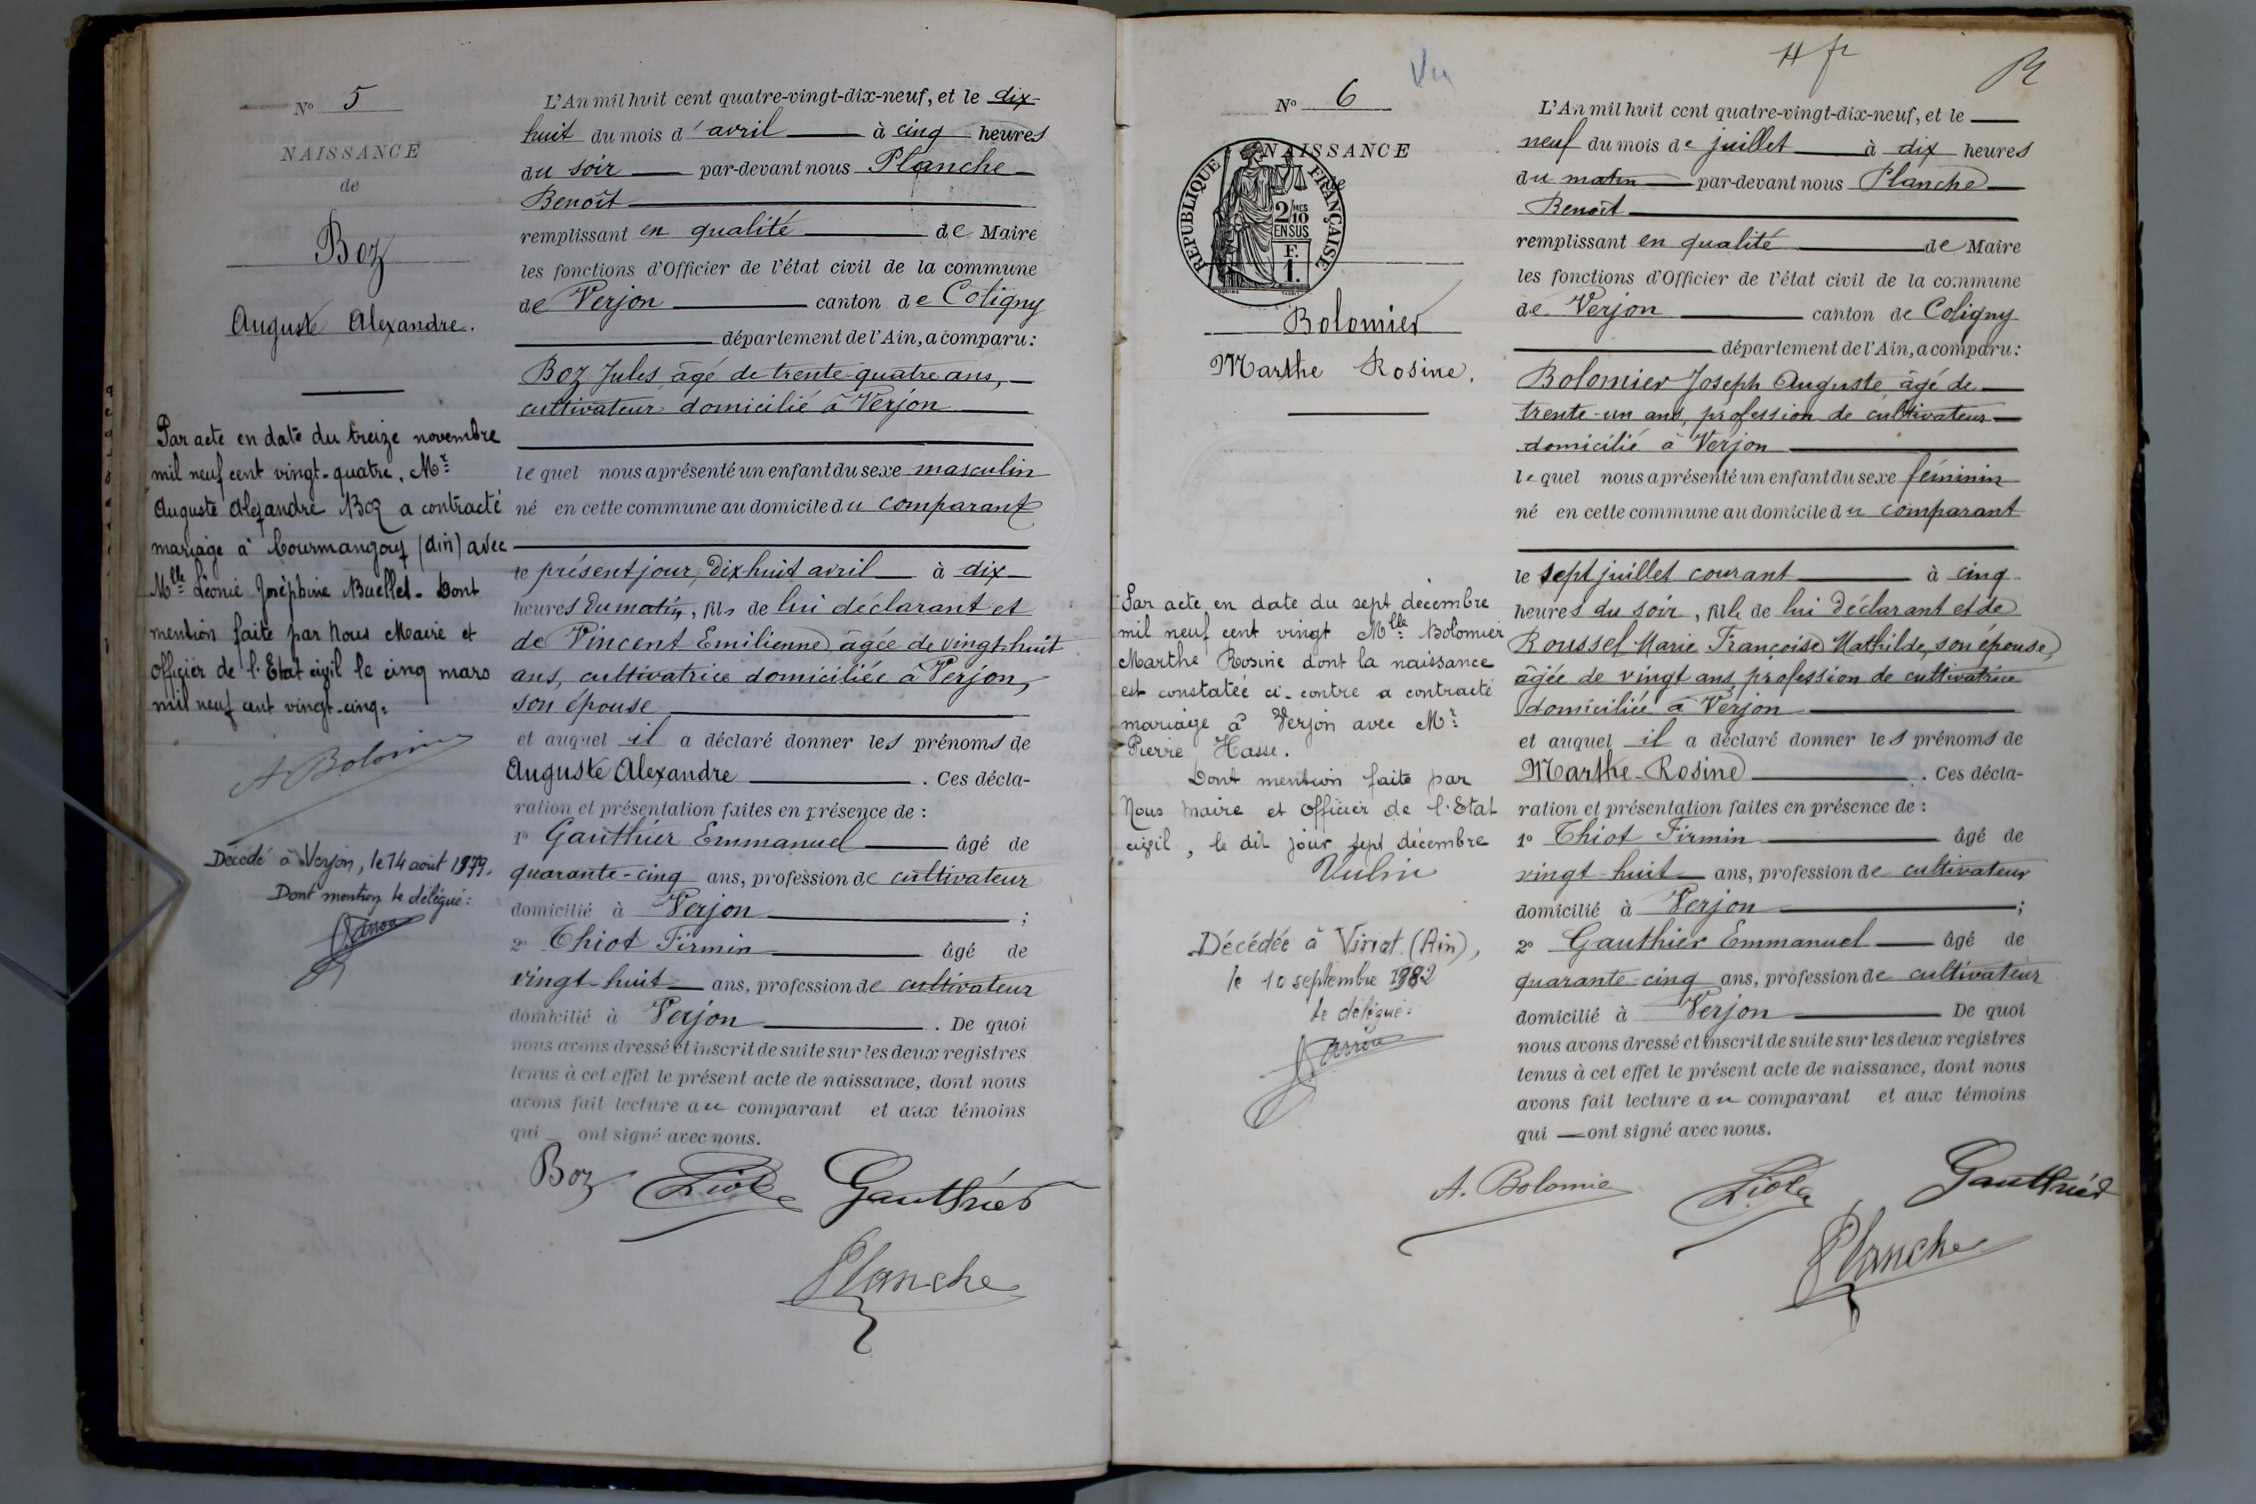 N° 5
NAISSANCE
de
Boz
Auguste Alexandre.
Par acte en date du treize novembre
mil neuf cent vingt-quatre, Mr
Auguste Alexandre Boz a contracté
mariage à Courmangoux (Ain) avec
Mlle Léonie Joséphine Buellet. Dont
mention faite par Nous Maire et
Officier de l'Etat civil le cinq mars
mil neuf cent vingt-cinq.
A Bolomie
Décédé à Verjon, le 14 août 1979.
Dont mention le délégué:
L'An mil huit cent quatre-vingt-dix-neuf, et le dix-
huit du mois d'avril à cinq heures
du soir par-devant nous Planche
Benoît
remplissant en qualité de Maire
les fonctions d'Officier de l'état civil de la commune
de Verjon canton de Coligny
département de l'Ain, a comparu:
Boz Jules âgé de trente-quatre ans,
cultivateur domicilié à Verjon
lequel nous a présenté un enfant du sexe masculin
né en cette commune au domicile du comparant
le présent jour, dix huit avril à dix
heures du matin, fils de lui déclarant et
de Vincent Emilienne âgée de vingt-huit
ans, cultivatrice domiciliée à Verjon,
son épouse
et auquel il a déclaré donner les prénoms de
Auguste Alexandre. Ces décla-
ration et présentation faites en présence de :
1° Gauthier Emmanuel âgé de
quarante-cinq ans, profession de cultivateur
domicilié à Verjon ;
2° Thiot Firmin âgé de
vingt-huit ans, profession de cultivateur
domicilié à Verjon. De quoi
nous avons dressé et inscrit de suite sur les deux registres
tenus à cet effet le présent acte de naissance, dont nous
avons fait lecture au comparant et aux témoins
qui ont signé avec nous.
Boz Gauthier
Planche
Vu
N° 6
NAISSANCE
de
REPUBLIQUE FRANÇAISE
2/10MES
EN SUS
F.
1.
Bolomier
Marthe Rosine.
Par acte en date du sept décembre
mil neuf cent vingt Mlle Bolomier
Marthe Rosine dont la naissance
est constatée ci-contre a contracté
mariage à Verjon avec Mr
Pierre Hasse.
Dont mention faite par
Nous maire et Officier de l'Etat
civil, le dit jour sept décembre
Vulin
Décédée à Viriat (Ain),
le 10 septembre 1982
Le délégué:
L'An mil huit cent quatre-vingt-dix-neuf, et le
neuf du mois de juillet à dix heures
du matin par-devant nous Planche
Benoît
remplissant en qualité de Maire
les fonctions d'Officier de l'état civil de la commune
de Verjon canton de Coligny
département de l'Ain, a comparu:
Bolomier Joseph Auguste âgé de
trente-un ans, profession de cultivateur
domicilié à Verjon
lequel nous a présenté un enfant du sexe féminin
né en cette commune au domicile du comparant
le sept juillet courant à cinq
heures du soir, fille de lui déclarant et de
Roussel Marie Françoise Mathilde, son épouse,
âgée de vingt ans profession de cultivatrice
domiciliée à Verjon
et auquel il a déclaré donner les prénoms de
Marthe-Rosine. Ces décla-
ration et présentation faites en présence de :
1° Thiot Firmin âgé de
vingt-huit ans, profession de cultivateur
domicilié à Verjon ;
2° Gauthier Emmanuel âgé de
quarante-cinq ans, profession de cultivateur
domicilié à Verjon De quoi
nous avons dressé et inscrit de suite sur les deux registres
tenus à cet effet le présent acte de naissance, dont nous
avons fait lecture au comparant et aux témoins
qui ont signé avec nous.
A. Bolomie Gauthier
Planche